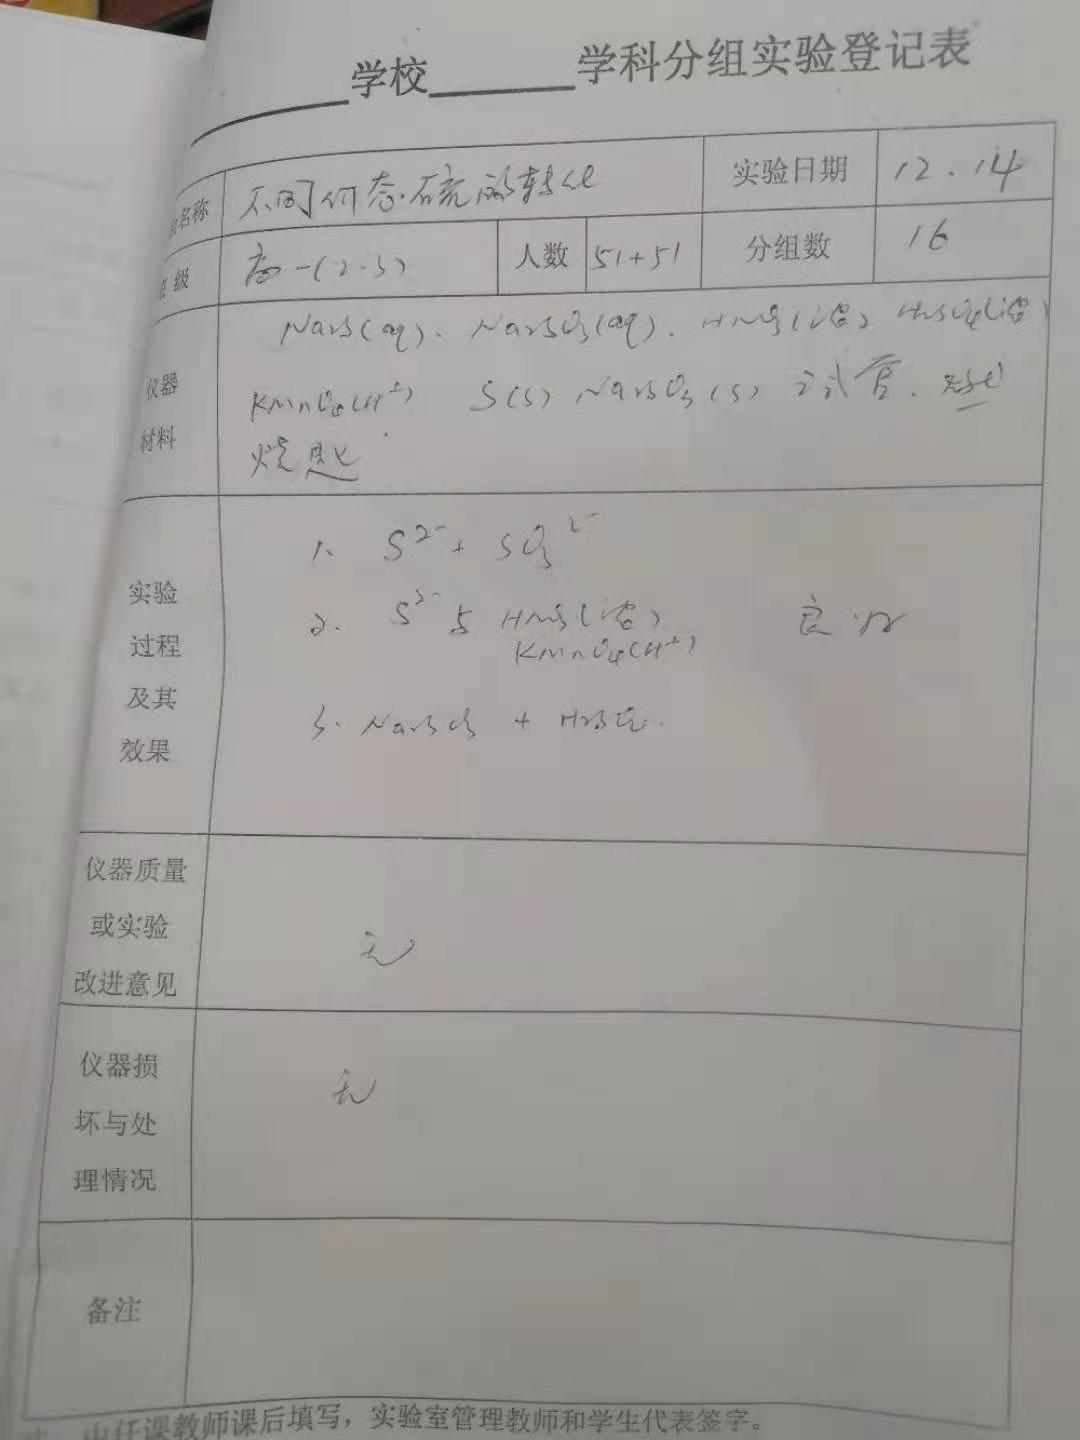 学校 学科分组实验登记表
名称 不同价态硫的转化 实验日期 12.14
级 高一(2.5) 人数 51+51 分组数 16
仪器
材料
Na2S(aq). Na2SO3(aq). HNO3(浓) H2SO4(浓)
KMnO4(H+) S(s) Na2SO3(s) 试管.
烧匙
实验
过程
及其
效果
1. S2- + SO3 2-
2. S2- 与 HNO3(浓) 良好
KMnO4(H+)
3. Na2SO3 + H2SO4.
仪器质量
或实验
改进意见
无
仪器损
坏与处
理情况
无
备注
由任课教师课后填写，实验室管理教师和学生代表签字。